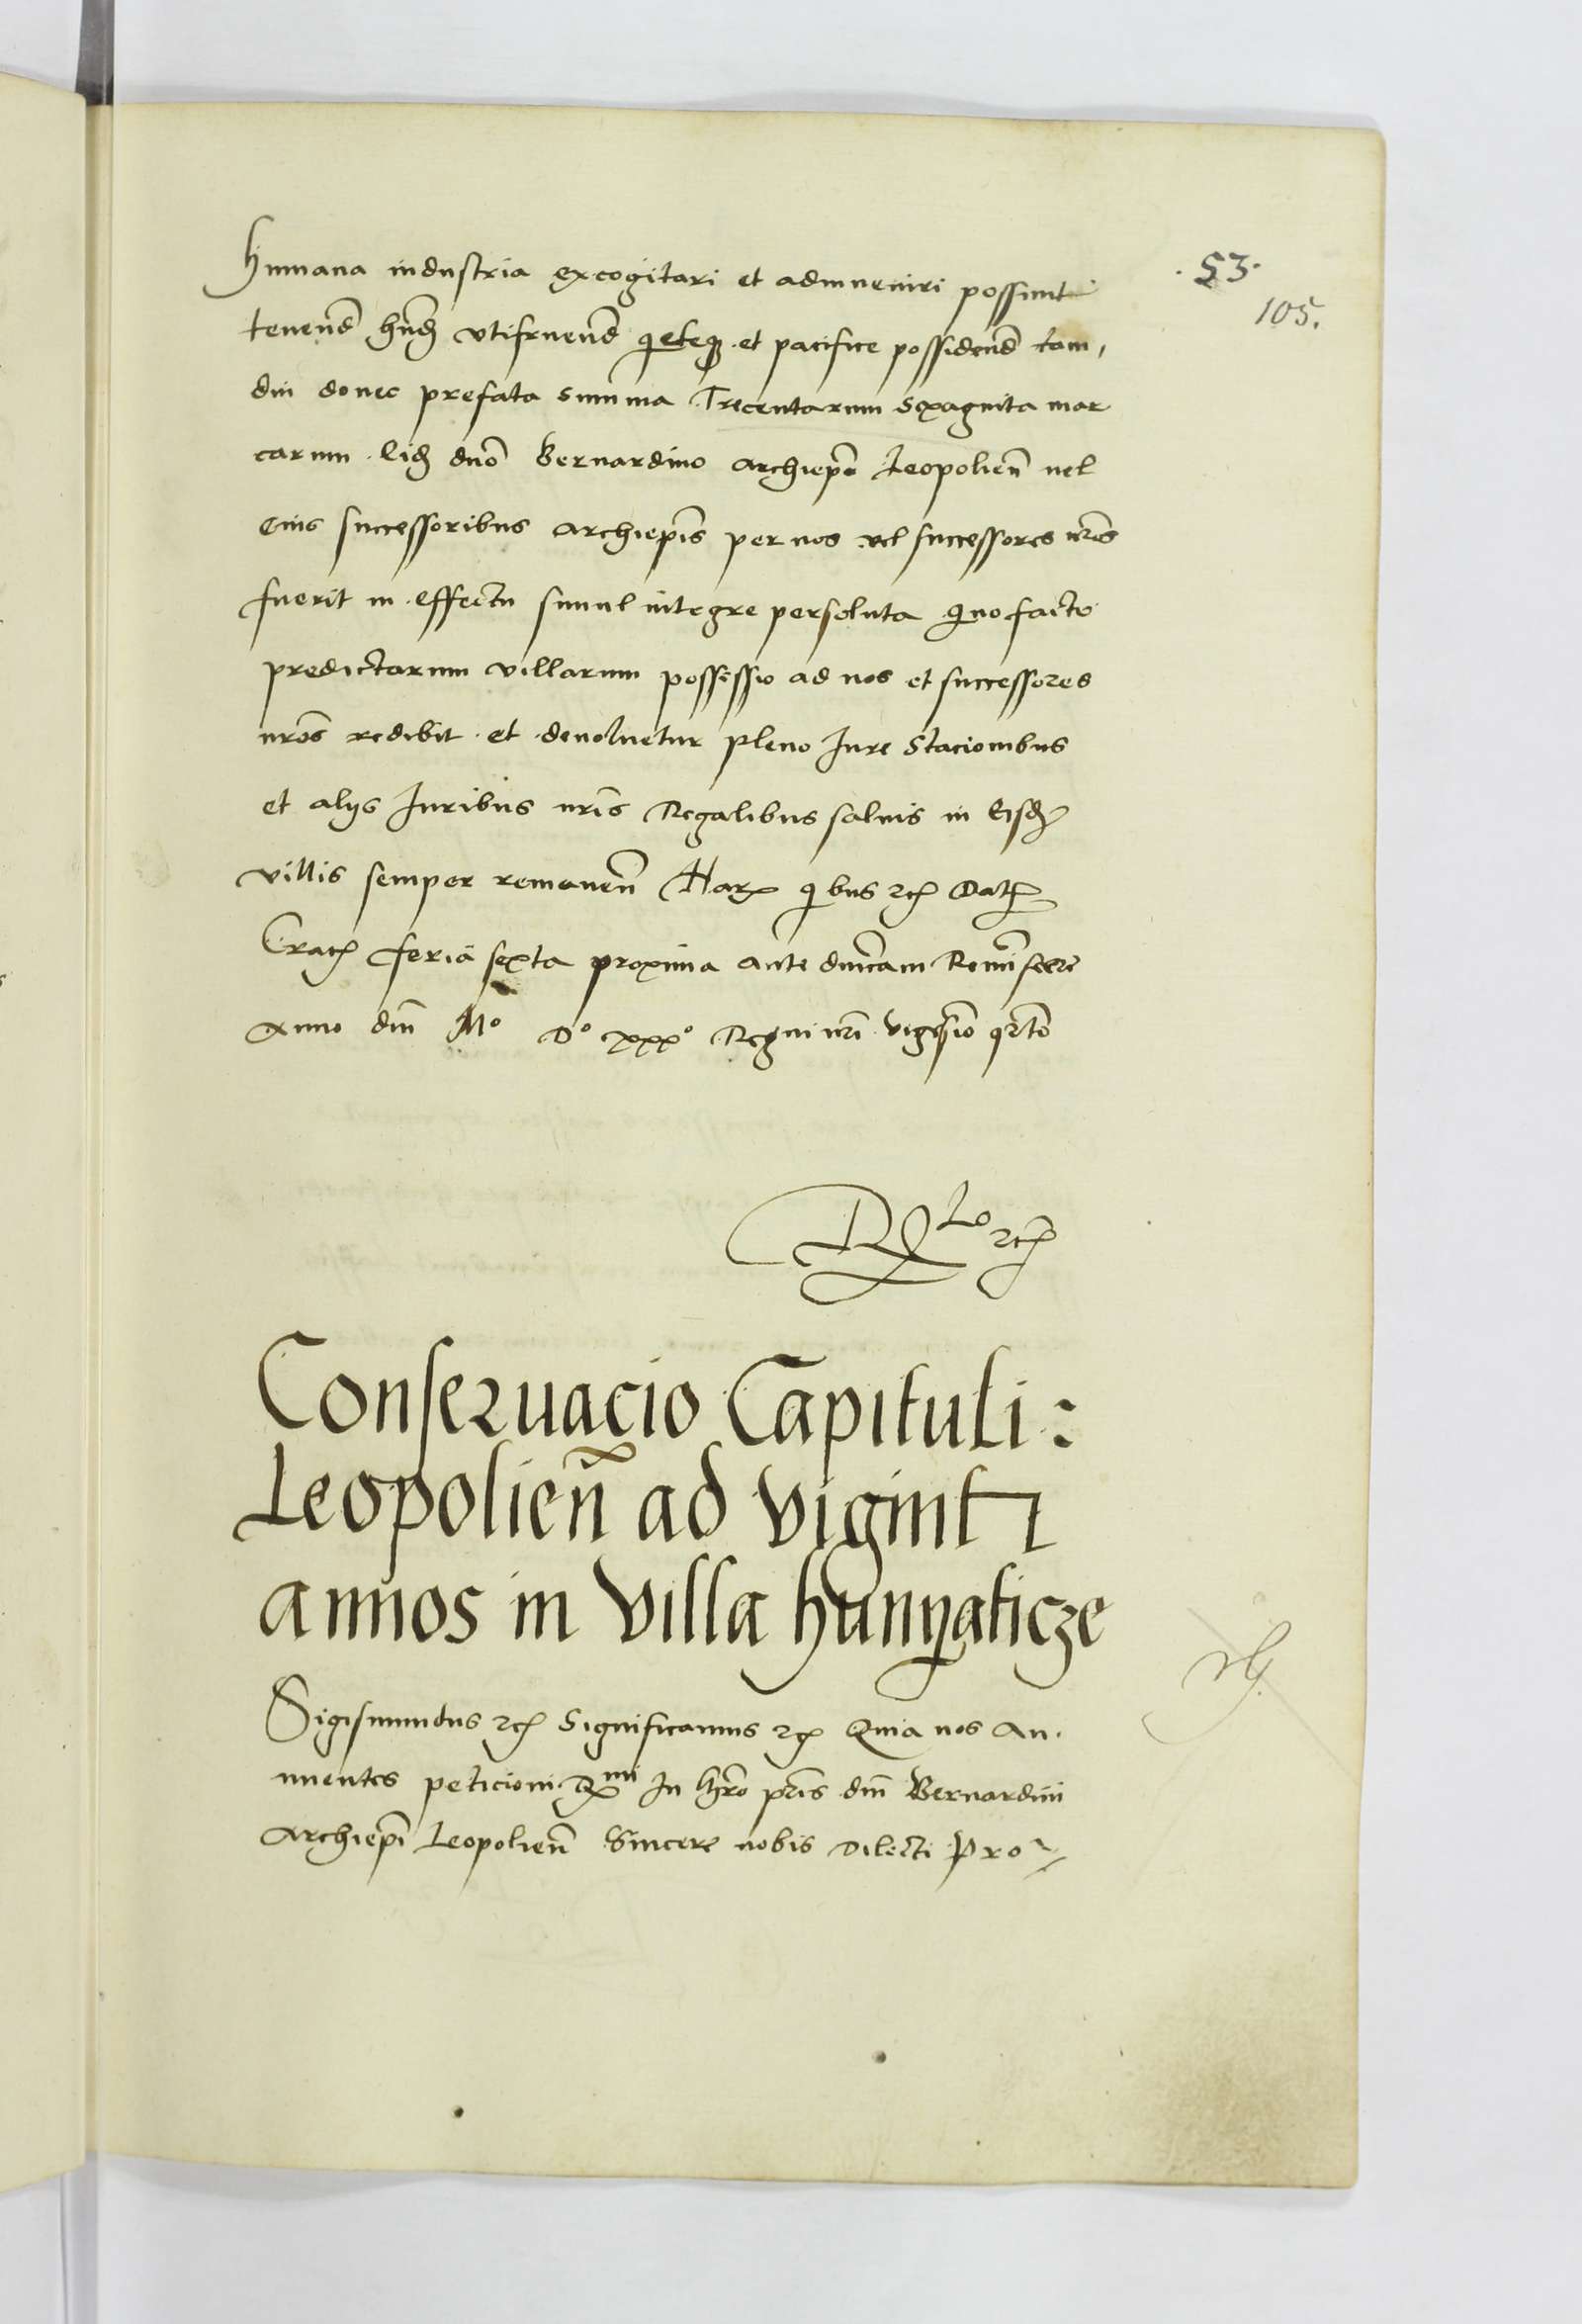 .53.
105.
humana industria excogitari et adinveniri possunt
tenend hnd utifruend qieteq et pacifice possidend tam,
diu donec prefata summa Trecentarum sexaginta mar
carum. dno Bernardino Archiepo Leopolien vel
eius successoribus Archiepis per nos vel successores nros
fuerit in effectu simul integre persoluta quo facto
predictarum villarum possessio ad nos et successores
nros redibit et devoluetur pleno Iure Stacionibus
et alijs Iuribus nris Regalibus salvis in eisd
villis semper remanen Har qibus etc Dat
Crac feria sexta proxima ante dnicam Reminiscere
Anno dni Mº Dº xxxº Regni nri vigesimo qrto
etc
Conseruacio Capituli:
Leopolien ad viginti
annos in Villa hunyaticze
Sigismundus etc Significamus etc Quia nos An.
nuentes peticioni Rmi In Chro pris dni Bernardini
Archiepi Leopolien Sincere nobis Dilecti Pro